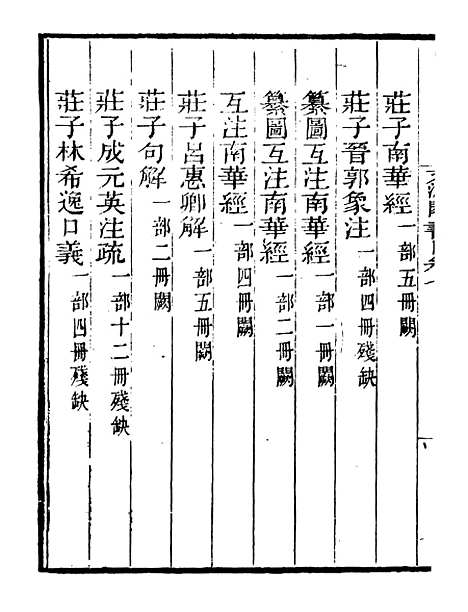 莊子南華經一部五冊闕
莊子晉郭象注一部四冊殘缺
纂圖互注南華經一部一冊闕
纂圖互注南華經一部二冊闕
互注南華經一部四冊闕
莊子呂惠卿解一部五冊闕
莊子句解一部二冊闕
莊子成元英注疏一部十二冊殘缺
莊子林希逸口義一部四冊殘缺